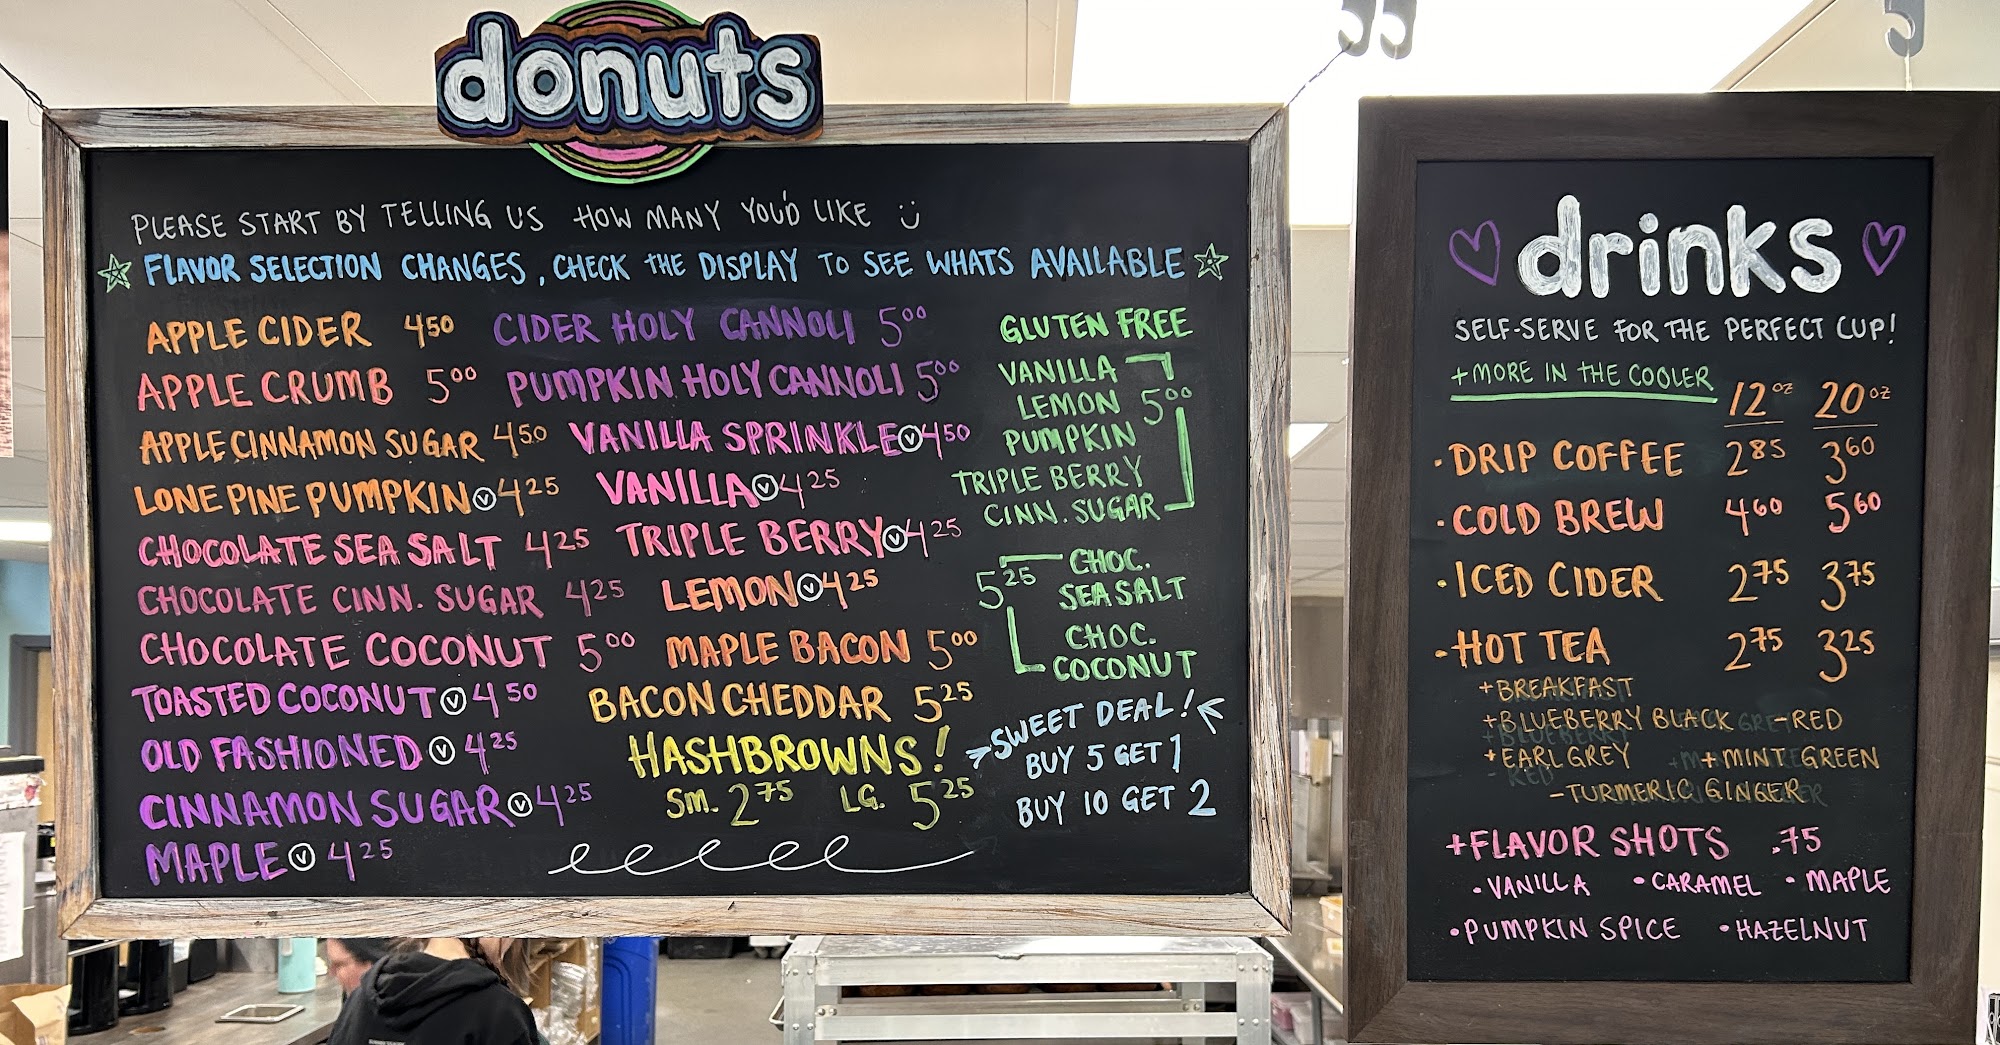 donuts
PLEASE START BY TELLING US HOW MANY YOU'D LIKE
FLAVOR SELECTION CHANGES, CHECK THE DISPLAY TO SEE WHATS AVAILABLE
APPLE CIDER 4 50
APPLE CRUMB 5 00
APPLE CINNAMON SUGAR 4 50
LONE PINE PUMPKIN V 4 25
CHOCOLATE SEA SALT 4 25
CHOCOLATE CINN. SUGAR 4 25
CHOCOLATE COCONUT 5 00
TOASTED COCONUT V 4 50
OLD FASHIONED V 4 25
CINNAMON SUGAR V 4 25
MAPLE V 4 25
CIDER HOLY CANNOLI 5 00
PUMPKIN HOLY CANNOLI 5 00
VANILLA SPRINKLE V 4 50
VANILLA V 4 25
TRIPLE BERRY V 4 25
LEMON V 4 25
MAPLE BACON 5 00
BACON CHEDDAR 5 25
HASHBROWNS!
SM. 2 75 LG. 5 25
GLUTEN FREE
VANILLA
LEMON 5 00
PUMPKIN
TRIPLE BERRY
CINN. SUGAR
5 25 CHOC.
SEA SALT
CHOC.
COCONUT
SWEET DEAL!
BUY 5 GET 1
BUY 10 GET 2
drinks
SELF-SERVE FOR THE PERFECT CUP!
+MORE IN THE COOLER
12 oz 20 oz
• DRIP COFFEE 2 85 3 60
• COLD BREW 4 60 5 60
• ICED CIDER 2 75 3 75
• HOT TEA 2 75 3 25
+BREAKFAST
+BLUEBERRY BLACK -RED
+EARL GREY +MINT GREEN
-TURMERIC GINGER
+FLAVOR SHOTS .75
• VANILLA • CARAMEL • MAPLE
• PUMPKIN SPICE • HAZELNUT